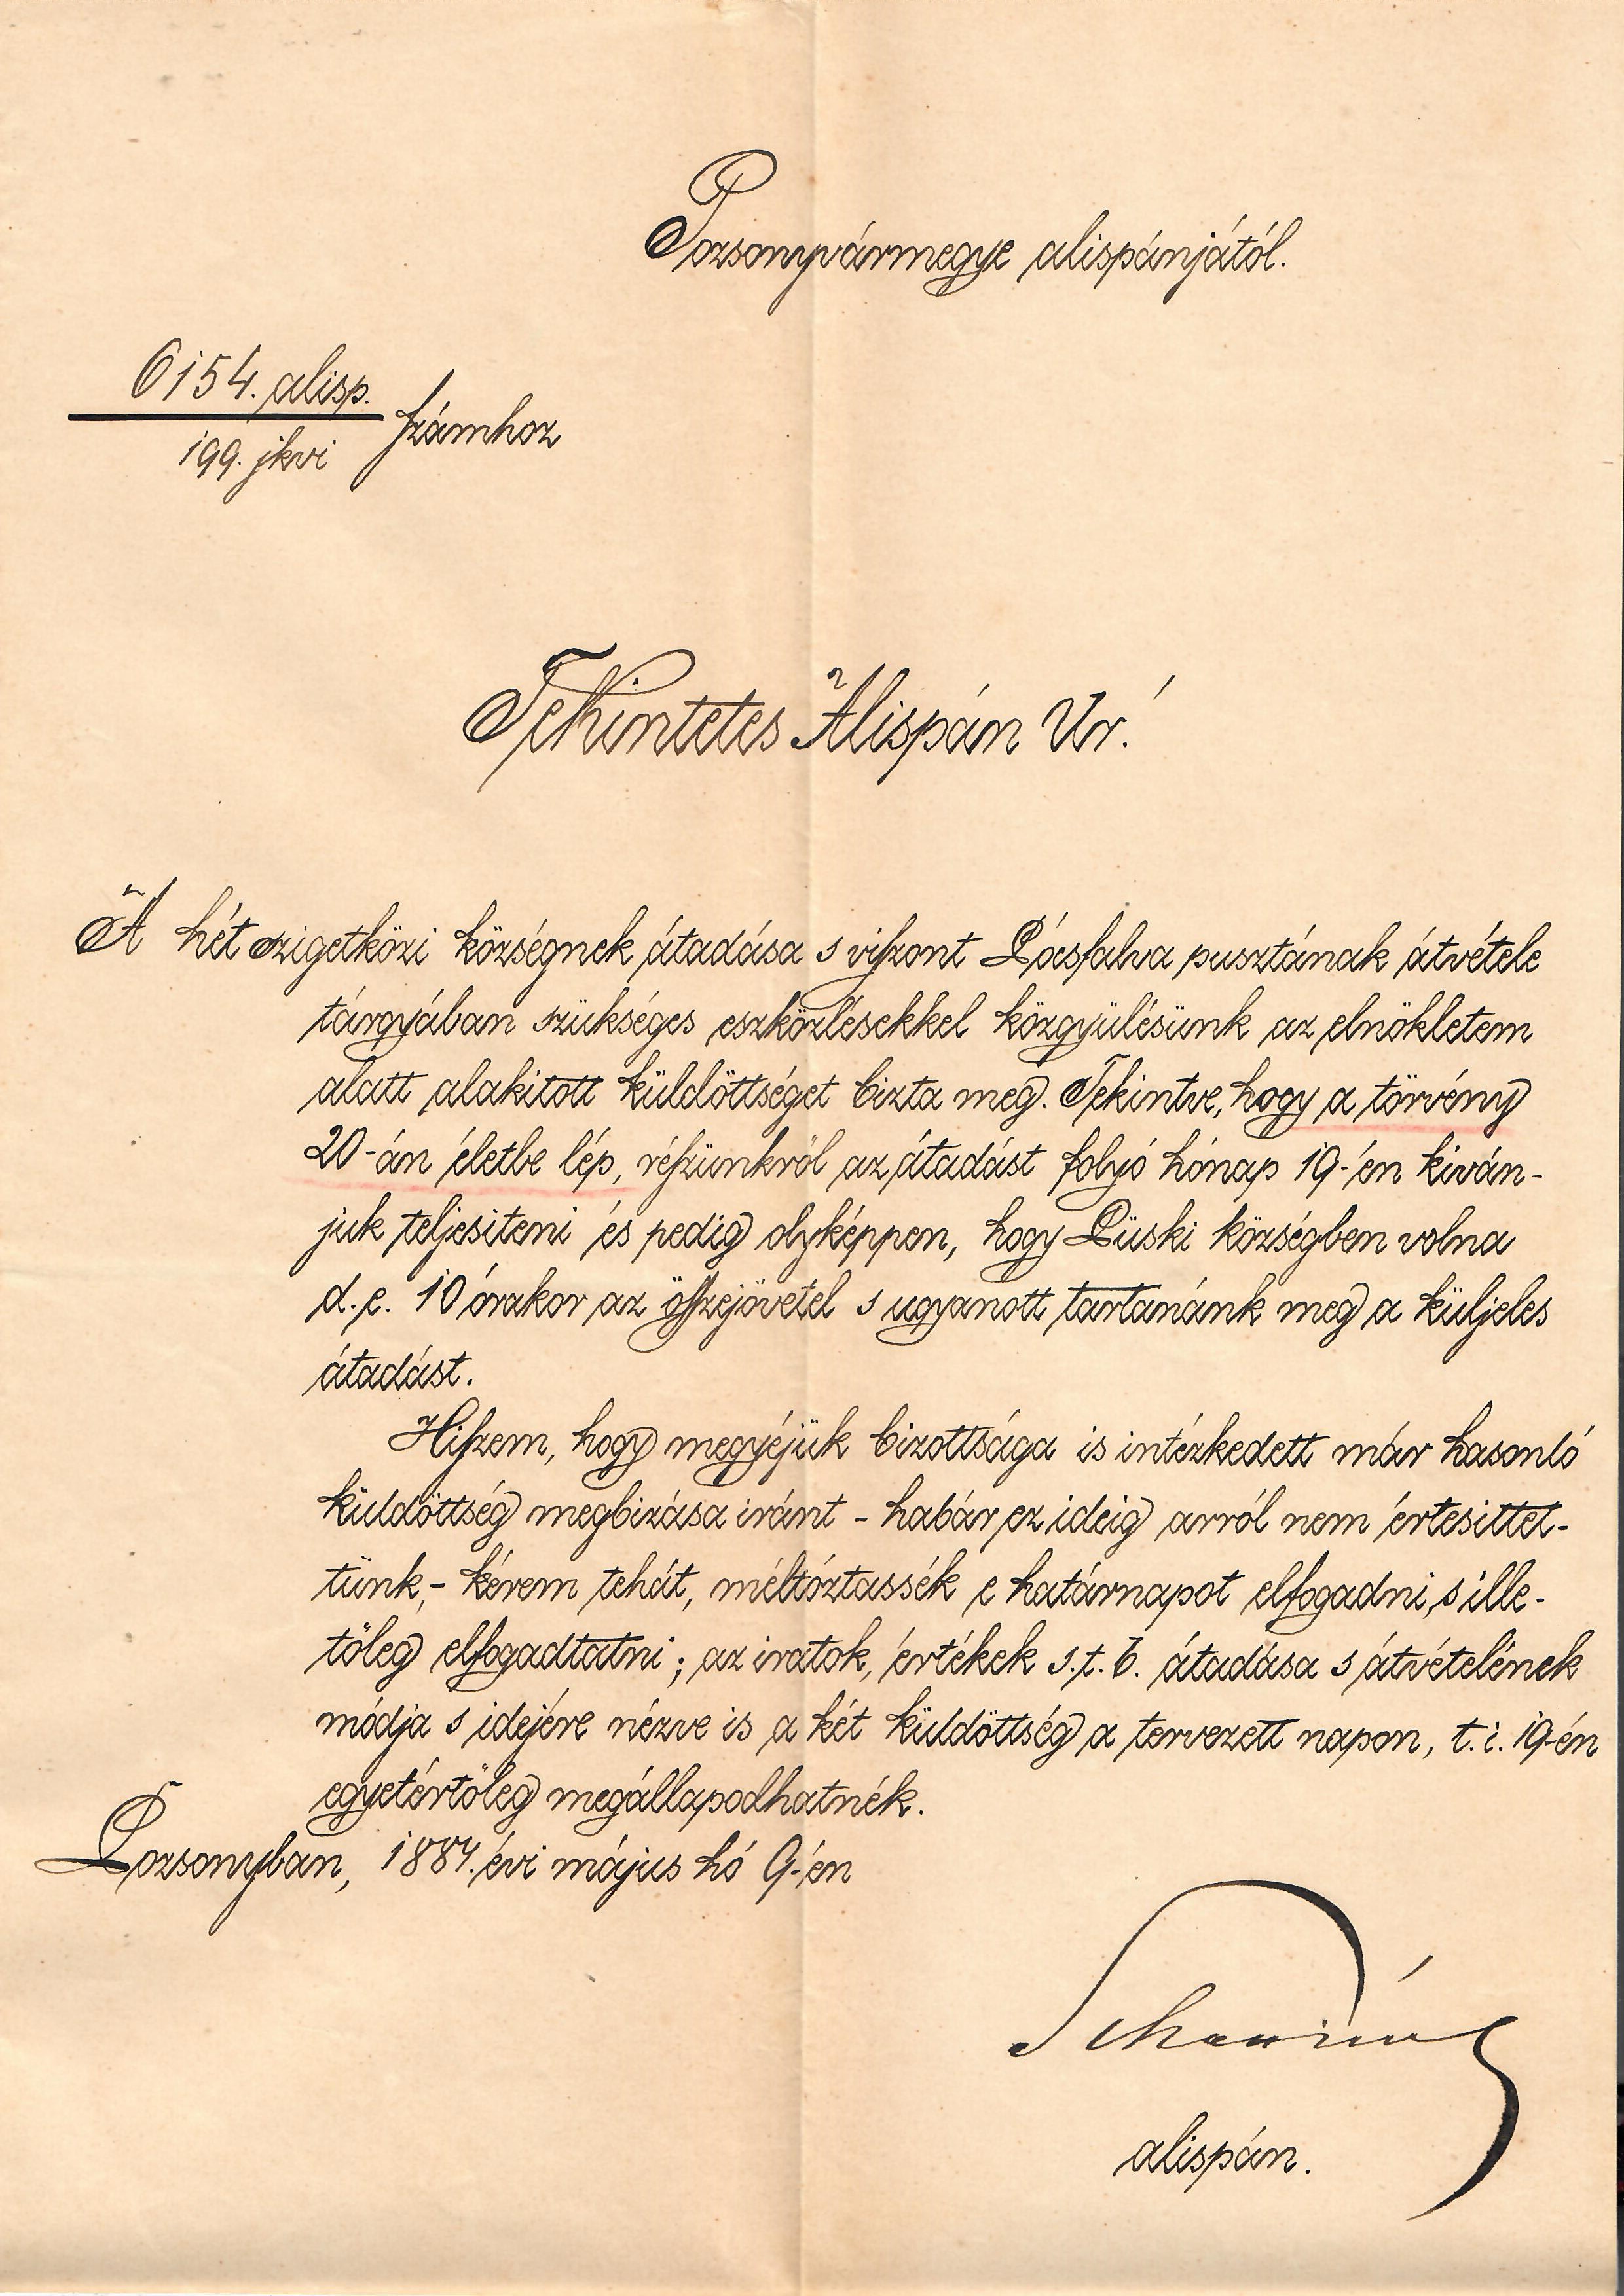 Pozsonyvármegye alispánjától.
6154. alisp.
199. jkvi számhoz
Tekintetes Alispán Úr!
A hét szigetközi községnek átadása s viszont Pócsfalva pusztának átvétele
tárgyában szükséges eszközlésekkel közgyülésünk az elnökletem
alatt alakitott küldöttséget bizta meg. Tekintve, hogy a törvény
20-án életbe lép, részünkről az átadást folyó hónap 19-én kiván-
juk teljesiteni és pedig olyképpen, hogy Püski községben volna
d.e. 10 órakor az összejövetel s ugyanott tartanánk meg a küljeles
átadást.
Hiszem, hogy megyéjük bizottsága is intézkedett már hasonló
küldöttség megbizása iránt - habár ez ideig arról nem értesittet-
tünk,- kérem tehát, méltóztassék e határnapot elfogadni, s ille-
tőleg elfogadtatni; az iratok, értékek s.t.b. átadása s átvételének
módja s idejére nézve is a két küldöttség a tervezett napon, t.i. 19-én
egyetértőleg megállapodhatnék.
Pozsonyban, 1884. évi május hó 9-én
alispán.